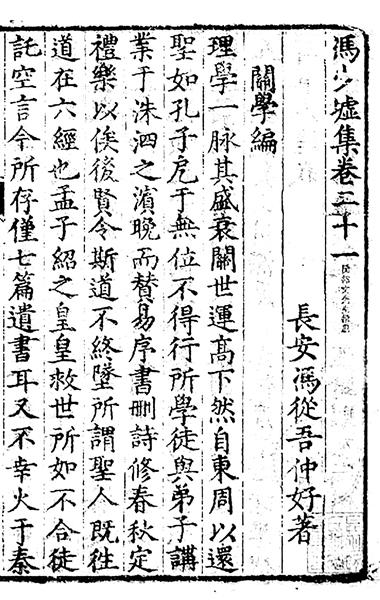 馮少墟集卷二十一
長安馮從吾仲好著
關學編
理學一脉其盛衰關世運高下然自東周以還
聖如孔子戹于無位不得行所學徒與弟子講
業于洙泗之濱晚而贊易序書删詩修春秋定
禮樂以俟後賢令斯道不終墜所謂聖人既往
道在六經也孟子紹之皇皇救世所如不合徒
託空言今所存僅七篇遺書耳又不幸火于秦